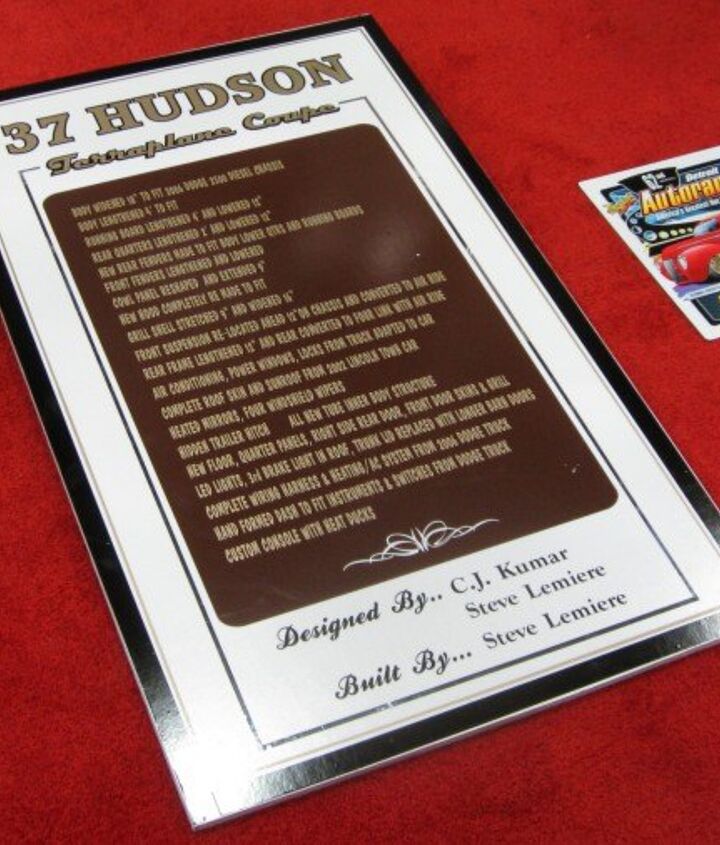 37 HUDSON
Terraplane Coupe
BODY WIDENED 18" TO FIT 2006 DODGE 2500 DIESEL CHASSIS
BODY LENGTHENED 4' TO FIT
RUNNING BOARD LENGTHENED 4' AND LOWERED 12"
REAR QUARTERS LENGTHENED 2' AND LOWERED 12"
NEW REAR FENDERS MADE TO FIT BODY LOWER QTRS AND RUNNING BOARDS
FRONT FENDERS LENGTHENED AND LOWERED
COWL PANEL RESHAPED AND EXTENDED
NEW HOOD COMPLETELY RE MADE TO FIT
GRILL SHELL STRETCHED 9" AND WIDENED 16"
FRONT SUSPENSION RE-LOCATED AHEAD 12" ON CHASSIS AND CONVERTED TO AIR RIDE
REAR FRAME LENGTHENED 12" AND REAR CONVERTED TO FOUR LINK WITH AIR RIDE
AIR CONDITIONING, POWER WINDOWS, LOCKS FROM TRUCK ADAPTED TO CAR
COMPLETE ROOF SKIN AND SUNROOF FROM 2002 LINCOLN TOWN CAR
HEATED MIRRORS, FOUR WINDSHIELD WIPERS
HIDDEN TRAILER HITCH ALL NEW TUBE INNER BODY STRUCTURE
NEW FLOOR, QUARTER PANELS, RIGHT SIDE REAR DOOR, FRONT DOOR SKINS & GRILL
LED LIGHTS, 3rd BRAKE LIGHT IN ROOF, TRUNK LID REPLACED WITH LONGER BARN DOORS
COMPLETE WIRING HARNESS & HEATING/AC SYSTEM FROM 2006 DODGE TRUCK
HAND FORMED DASH TO FIT INSTRUMENTS & SWITCHES FROM DODGE TRUCK
CUSTOM CONSOLE WITH HEAT DUCKS
Designed By.. C.J. Kumar
Steve Lemiere
Built By... Steve Lemiere
Detroit
Autoram
America's Greatest